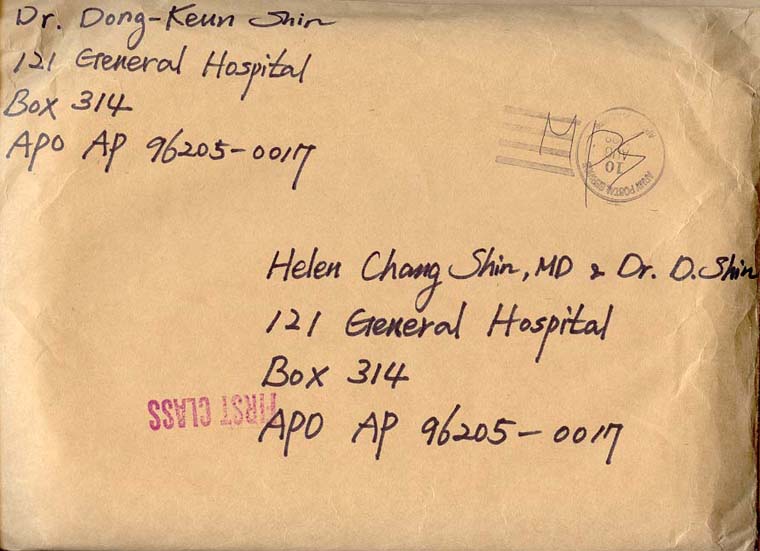 Dr. Dong-Keun Shin
121 General Hospital
Box 314
APO AP 96205-0017
10
AUG
Helen Chang Shin, MD & Dr. D. Shin
121 General Hospital
Box 314
APO AP 96205-0017
FIRST CLASS